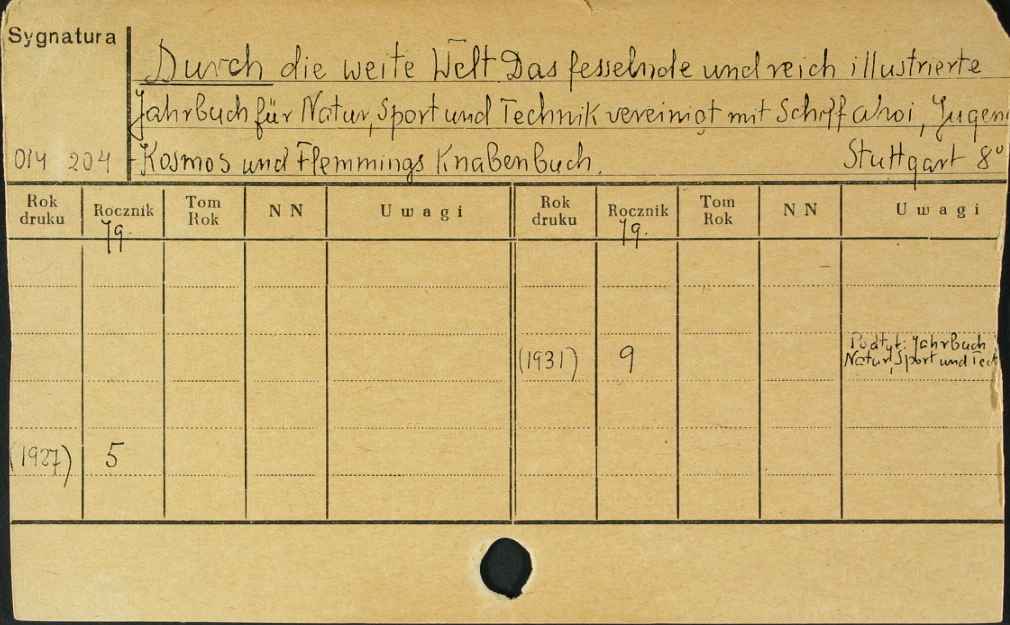 Sygnatura
Durch die weite Welt Das fesselnde und reich illustrierte
Jahrbuch für Natur, Sport und Technik vereinigt mit Schiff ahoi, Jugen
014 204 Kosmos und Flemmings Knabenbuch. Stuttgart 8°
Rok druku Rocznik Tom Rok NN Uwagi Rok druku Rocznik Tom Rok NN Uwagi
Jg. Jg.
(1931) 9 Podtyt: Jahrbuch
Natur, Sport und Tech
(1927) 5